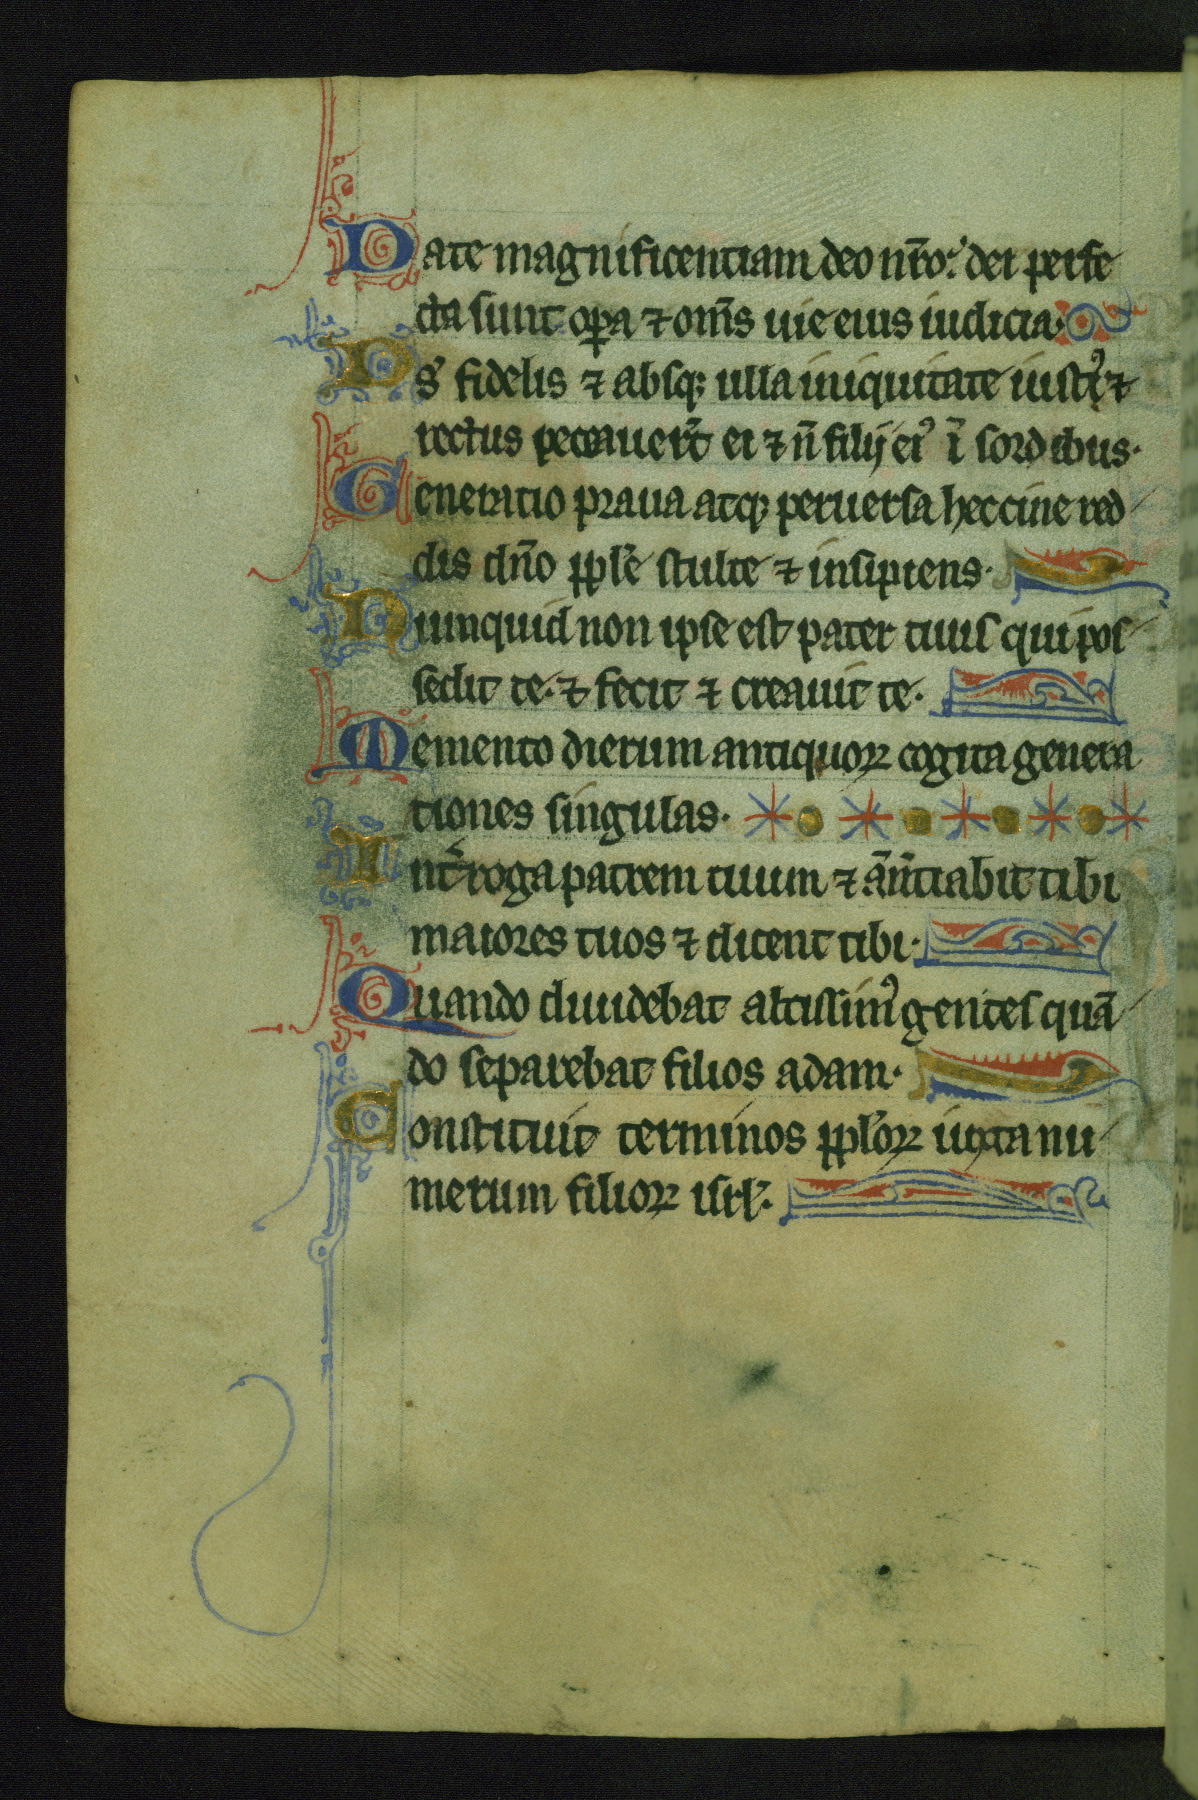 Date magnificentiam deo nr̄o: dei perfe
cta sunt oꝑa ⁊ om̄s uie eius iudicia·
Ds fidelis ⁊ absqꝫ ulla iniquitate iustꝰ ⁊
rectus peccauer̄t ei ⁊ n̄ filij eiꝰ ī sordibus·
Generatio praua atqꝫ peruersa heccine red
dis dn̄o pple stulte ⁊ insipiens·
Nunquid non ipse est pater tuus qui pos
sedit te· ⁊ fecit ⁊ creauit te·
Memento dierum antiquoꝝ cogita genera
tiones singulas·
Int̄roga patrem tuum ⁊ ān̄tiabit tibi
maiores tuos ⁊ dicent tibi·
Quando diuidebat altissimꝰ gentes quā
do separebat filios adam·
Constituit terminos pploꝝ iuxta nu
merum filioꝝ isrl·